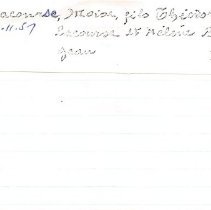 Lacourse, Moïse, fils Théodo
.11.51 Lacourse et Hélène B
Jean